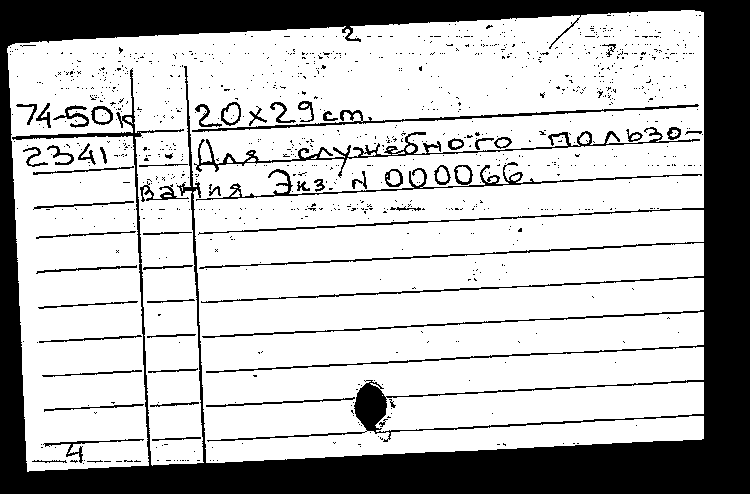 2
74-50к 20x29 cm.
2341 Для служебного пользо-
вания. Экз. N 000066.
4